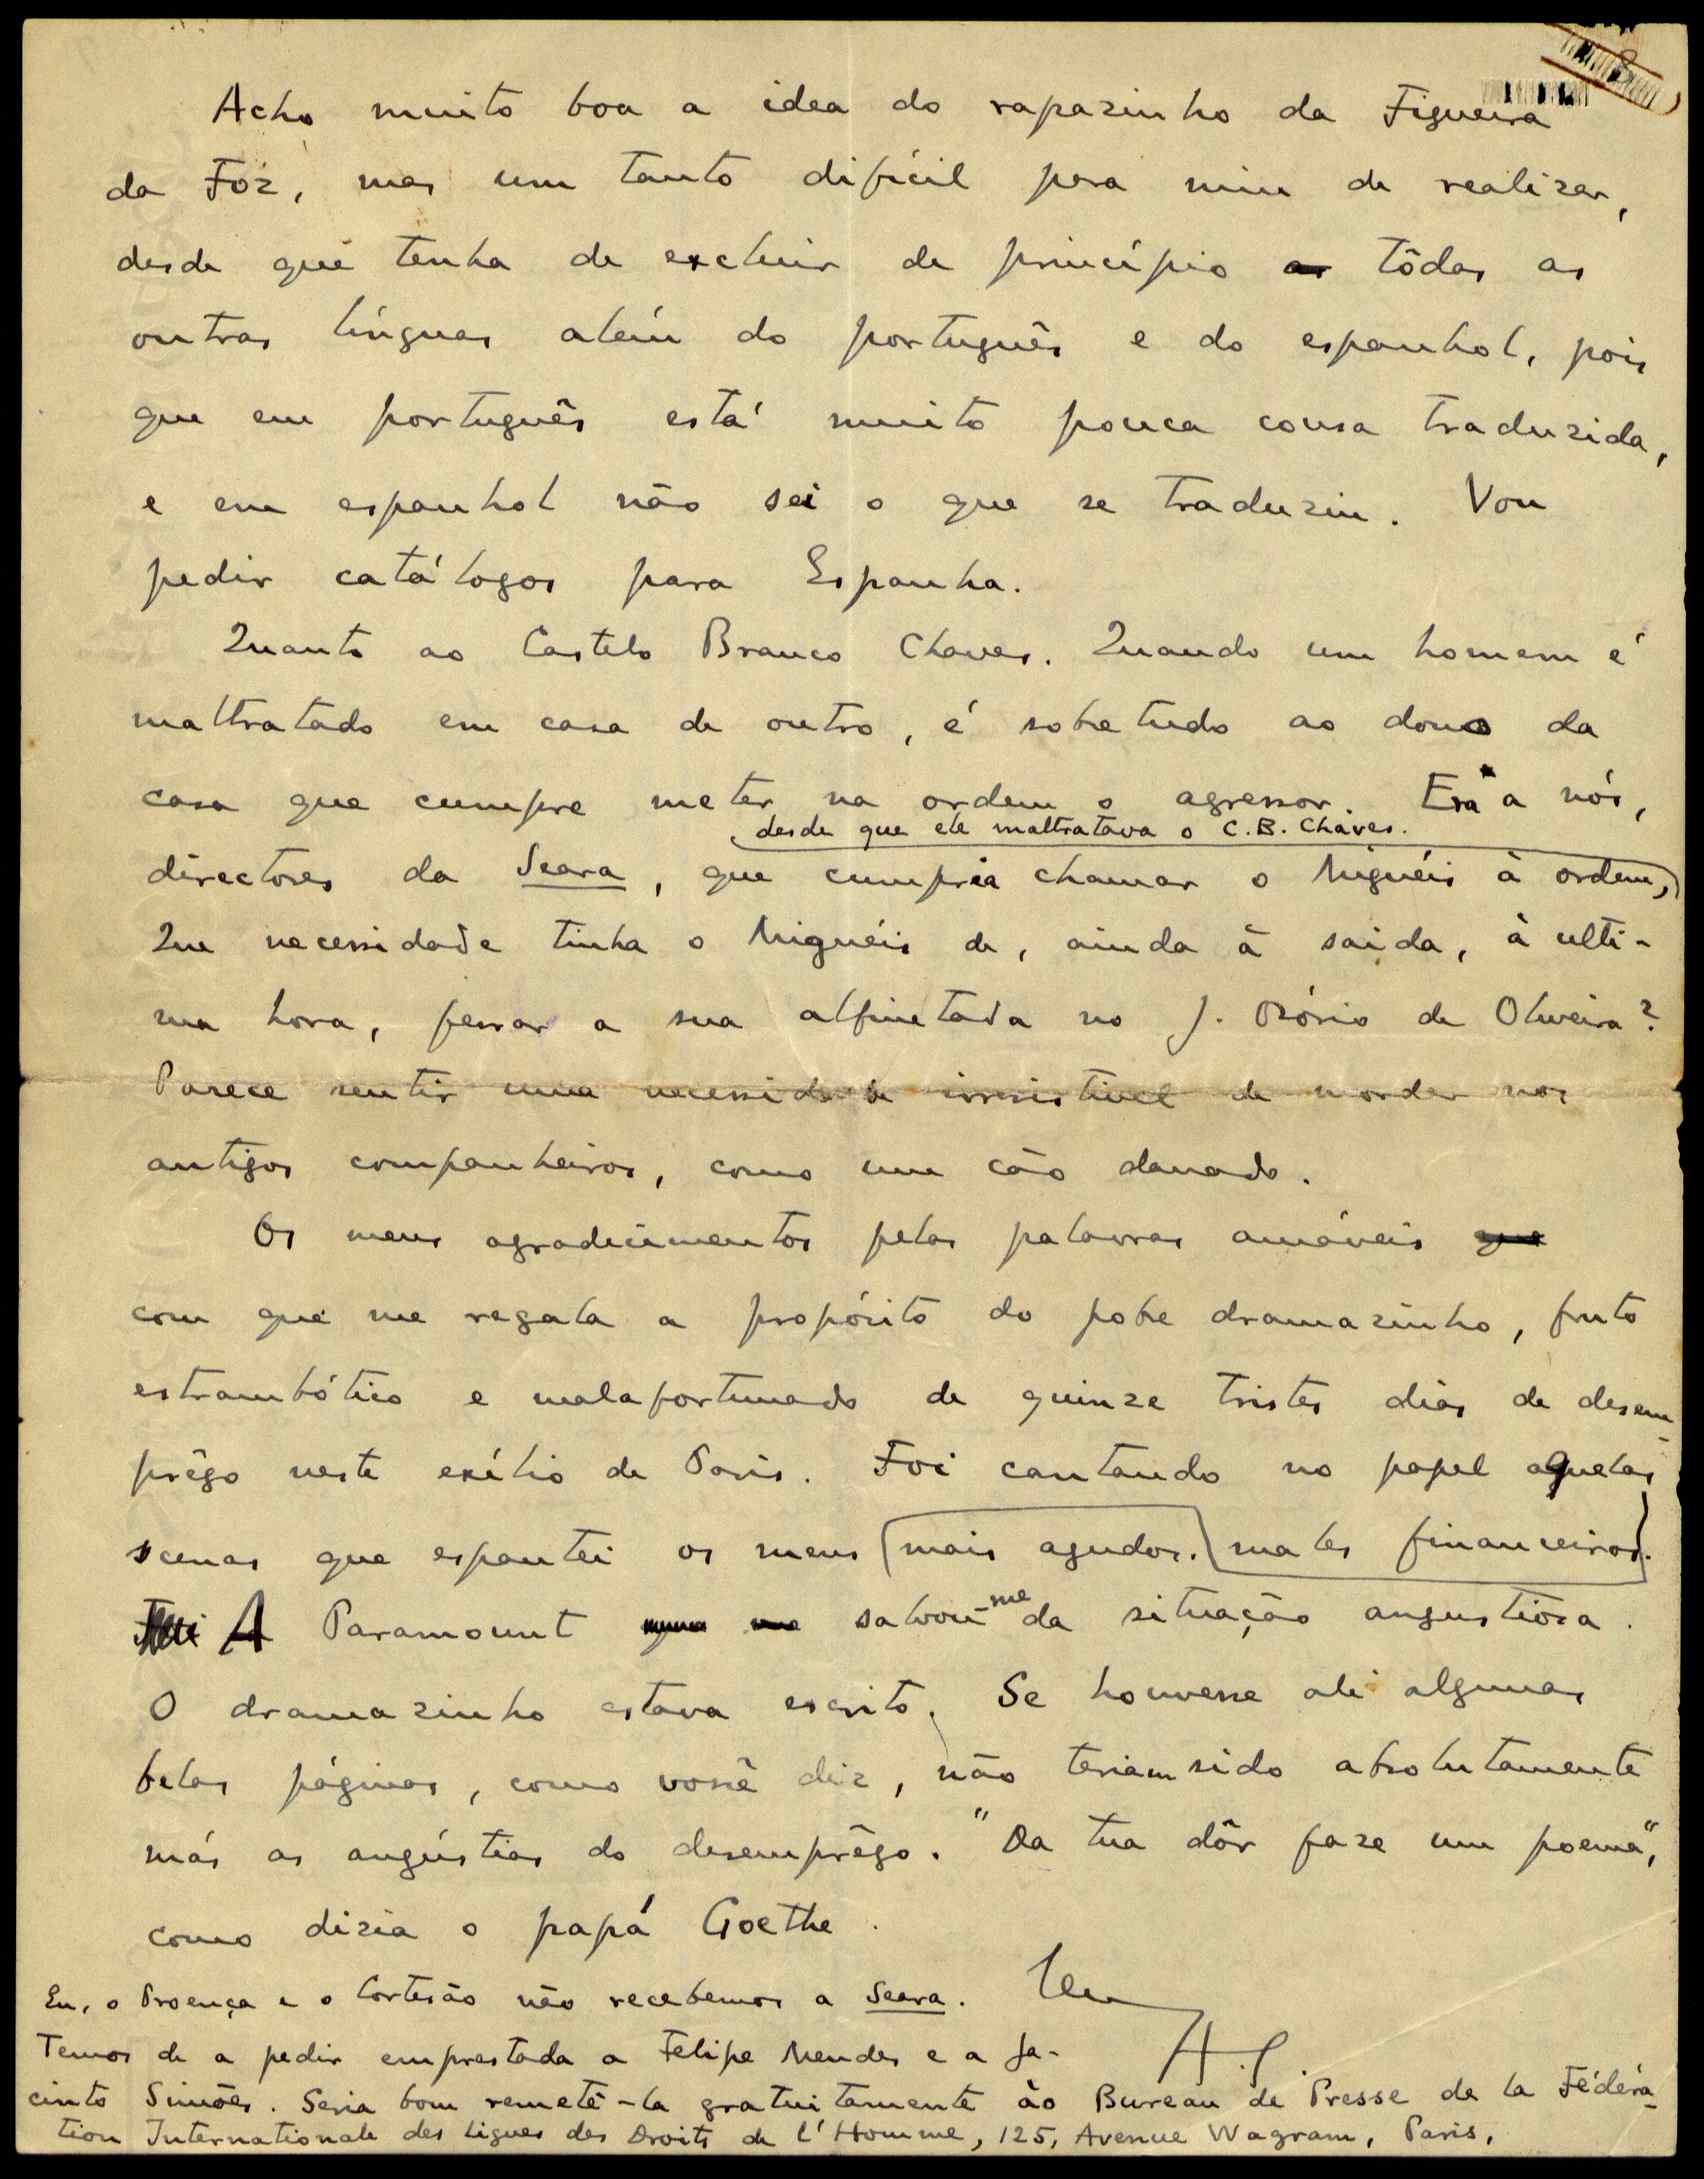 Acho muito boa a idea do rapazinho da Figueira
da Foz, mas um tanto difícil para mim de realizar,
desde que tenha de excluir de princípio as tôdas as
outras línguas além do português e do espanhol, pois
que em português está muito pouca cousa traduzida,
e em espanhol não sei o que se traduziu. Vou
pedir catálogos para Espanha.
Quanto ao Castelo Branco Chaves. Quando um homem é
maltratado em casa de outro, é sobretudo ao dono da
casa que cumpre meter na ordem o agressor. Era a nós,
desde que ele maltratava o C.B. Chaves.
directores da Seara, que cumpria chamar o Miguéis à ordem,
Que necessidade tinha o Miguéis de, ainda à saida, à ulti-
ma hora, ferrar a sua alfinetada no J. Osório de Oliveira?
Parece sentir uma necessidade irresistivel de morder nos
antigos companheiros, como um cão danado.
Os meus agradecimentos pelas palavras amáveis que
com que me regala a propósito do pobre dramazinho, fruto
estrambótico e malafortunado de quinze tristes dias de desem-
prêgo neste exílio de Paris. Foi cantando no papel aquelas
scenas que espantei os meus mais agudos. males financeiros.
A Paramount salvou-me da situação angustiosa.
O dramazinho estava escrito. Se houvesse ali algumas
belas páginas, como você diz, não teriam sido absolutamente
más as angústias do desemprêgo. "Da tua dôr faze um poema",
como dizia o papá Goethe.
Eu, o Proença e o Cortesão não recebemos a Seara.
Temos de a pedir emprestada a Felipe Mendes e a Ja-
cinto Simões. Seria bom remetê-la gratuitamente ào Bureau de Presse de la Fédéra-
tion Internationale des Ligues des Droits de l'Homme, 125, Avenue Wagram, Paris.